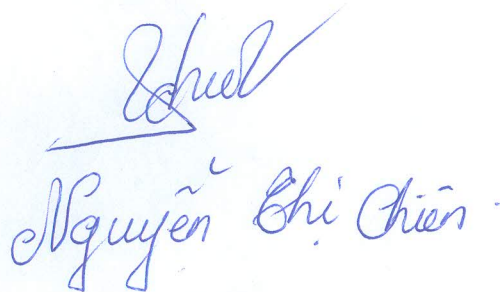 Nguyễn Thị Chiên.